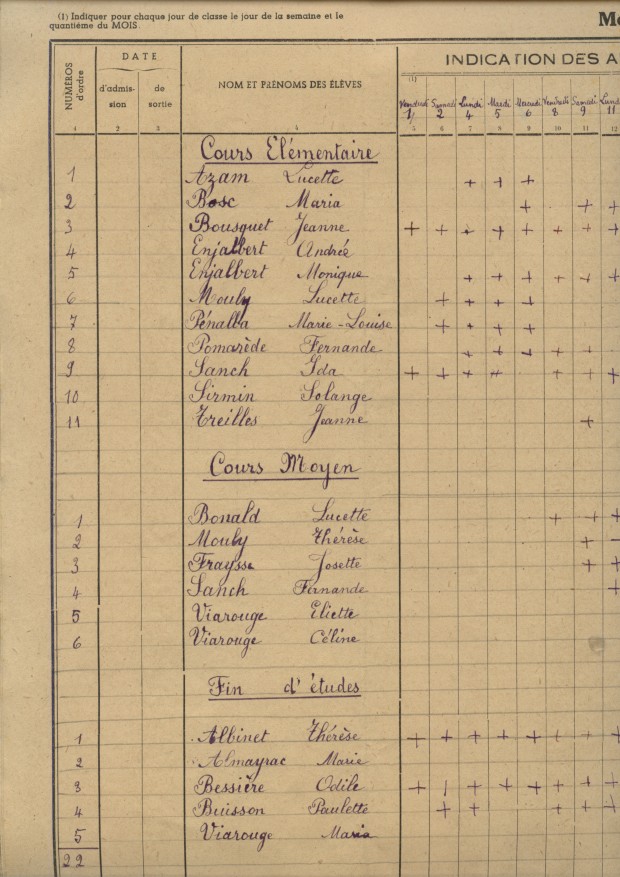 (1) Indiquer pour chaque jour de classe le jour de la semaine et le
quantième du MOIS.
DATE
INDICATION DES A
NUMÉROS
d'ordre
d'admis-
sion
de
sortie
NOM ET PRÉNOMS DES ÉLÈVES
(1)
Vendredi Samedi Lundi Mardi Mercredi Vendredi Samedi Lund
1 2 4 5 6 8 9 11
1 2 3 4 5 6 7 8 9 10 11 12
Cours Elémentaire
1 Azam Lucette + + +
2 Bosc Maria + + +
3 Bousquet Jeanne + + + + + + + +
4 Enjalbert Andrée
5 Enjalbert Monique + + + + + +
6 Mouly Lucette + + + +
7 Pénalba Marie-Louise + + + +
8 Pomarède Fernande + + + + +
9 Sanch Ida + + + + + + +
10 Sirmin Solange
11 Treilles Jeanne +
Cours Moyen
1 Bonald Lucette + + +
2 Mouly Thérèse + +
3 Fraysse Josette + +
4 Sanch Fernande +
5 Viarouge Eliette
6 Viarouge Céline
Fin d'études
1 Albinet Thérèse + + + + + + + +
2 Almayrac Marie
3 Bessière Odile + | + + + + + +
4 Buisson Paulette + + + + +
5 Viarouge Maria
22